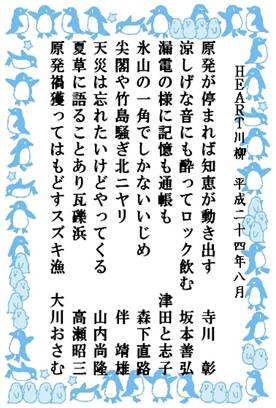 HEART川柳　平成二十四年八月
原発が停まれば知恵が動き出す　寺川　彰
涼しげな音にも酔ってロック飲む　坂本善弘
漏電の様に記憶も通帳も　津田と志子
氷山の一角でしかないいじめ　森下直路
尖閣や竹島騒ぎ北ニヤリ　伴　靖雄
天災は忘れたいけどやってくる　山内尚隆
夏草に語ることあり瓦礫浜　高瀬昭三
原発禍獲ってはもどすスズキ漁　大川おさむ